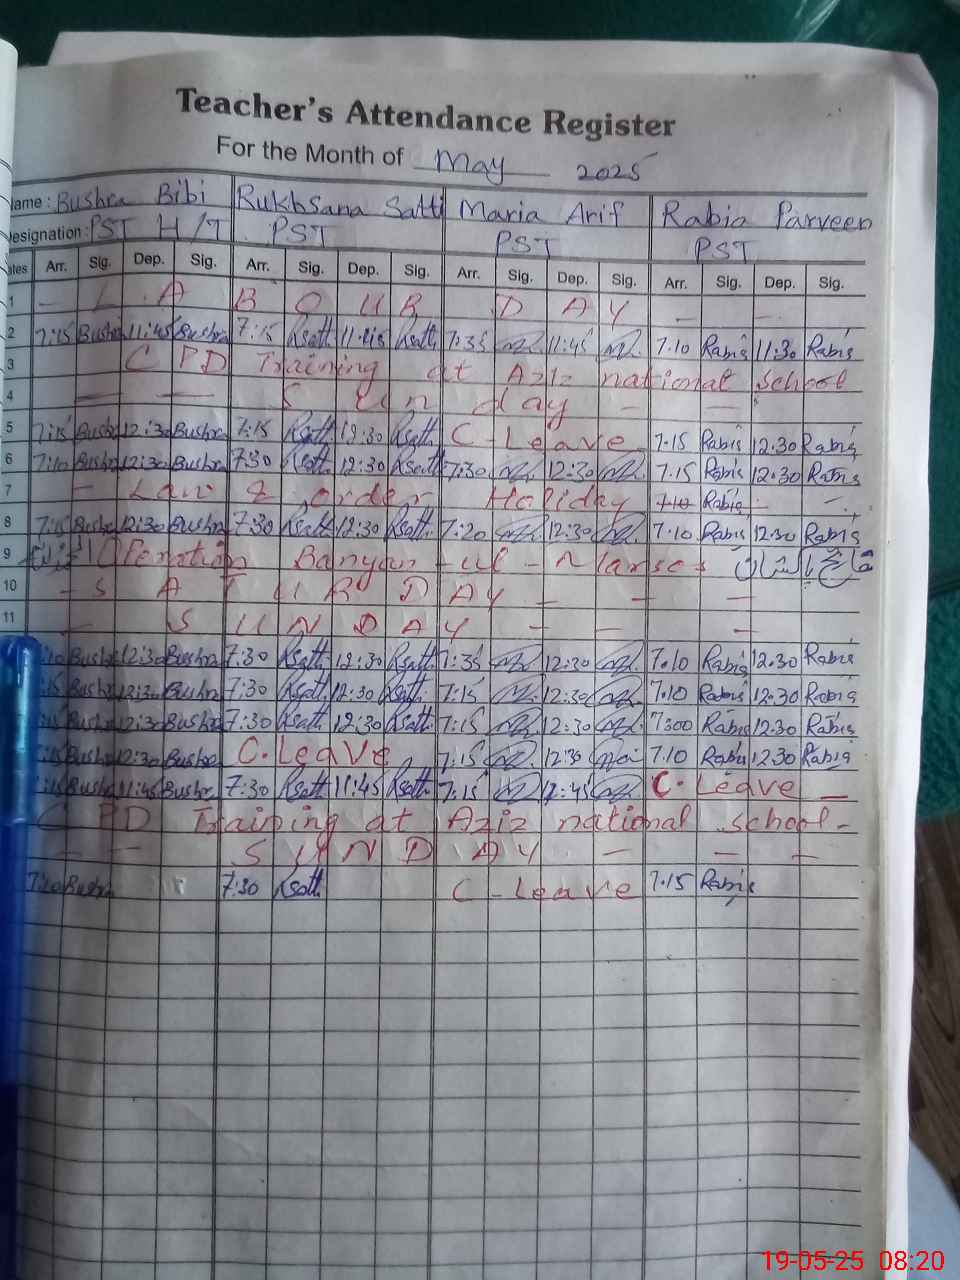 Teacher's Attendance Register
For the Month of May 2025
ame: Bushra Bibi Rukhsana Satti Maria Arif Rabia Parveen
esignation: PST H/T PST PST PST
ates Arr. Sig. Dep. Sig. Arr. Sig. Dep. Sig. Arr. Sig. Dep. Sig. Arr. Sig. Dep. Sig.
1 - L A B O U R D A Y - -
2 7:15 Bushra 11:45 Bushra 7:15 Rsatti 11:45 Rsatti 7:35 11:45 7.10 Rabia 11:30 Rabia
3 CPD Training at Aziz national school
4 - - S u n day - -
5 7:15 Bushra 12:30 Bushra 7:15 Rsatti 12:30 Rsatti C-Leave 7.15 Rabia 12.30 Rabia
6 7:10 Bushra 12:30 Bushra 7:30 Rsatti 12:30 Rsatti 7:30 12:30 7.15 Rabia 12.30 Rabia
7 - Law & order Holiday 7.10 Rabia - -
8 7:15 Bushra 12:30 Bushra 7:30 Rsatti 12:30 Rsatti 7:20 12:30 7.10 Rabia 12.30 Rabia
9 Operation Banyan-ul-Marsos
10 - S A T U R D A Y - - -
11 - S U N D A Y - - -
Bushra 12:30 Bushra 7:30 Rsatti 12:30 Rsatti 7:35 12:30 7.10 Rabia 12.30 Rabia
Bushra 12:30 Bushra 7:30 Rsatti 12:30 Rsatti 7:15 12:30 7.10 Rabia 12.30 Rabia
Bushra 12:30 Bushra 7:30 Rsatti 12:30 Rsatti 7:15 12:30 7:00 Rabia 12.30 Rabia
Bushra 12:30 Bushra C.Leave 7:15 12:30 7.10 Rabia 12.30 Rabia
Bushra 11:45 Bushra 7:30 Rsatti 11:45 Rsatti 7:15 C.Leave -
CPD Training at Aziz national school -
- - S U N D A Y - - -
Bushra 7:30 Rsatti C-Leave 7.15 Rabia
19-05-25 08:20